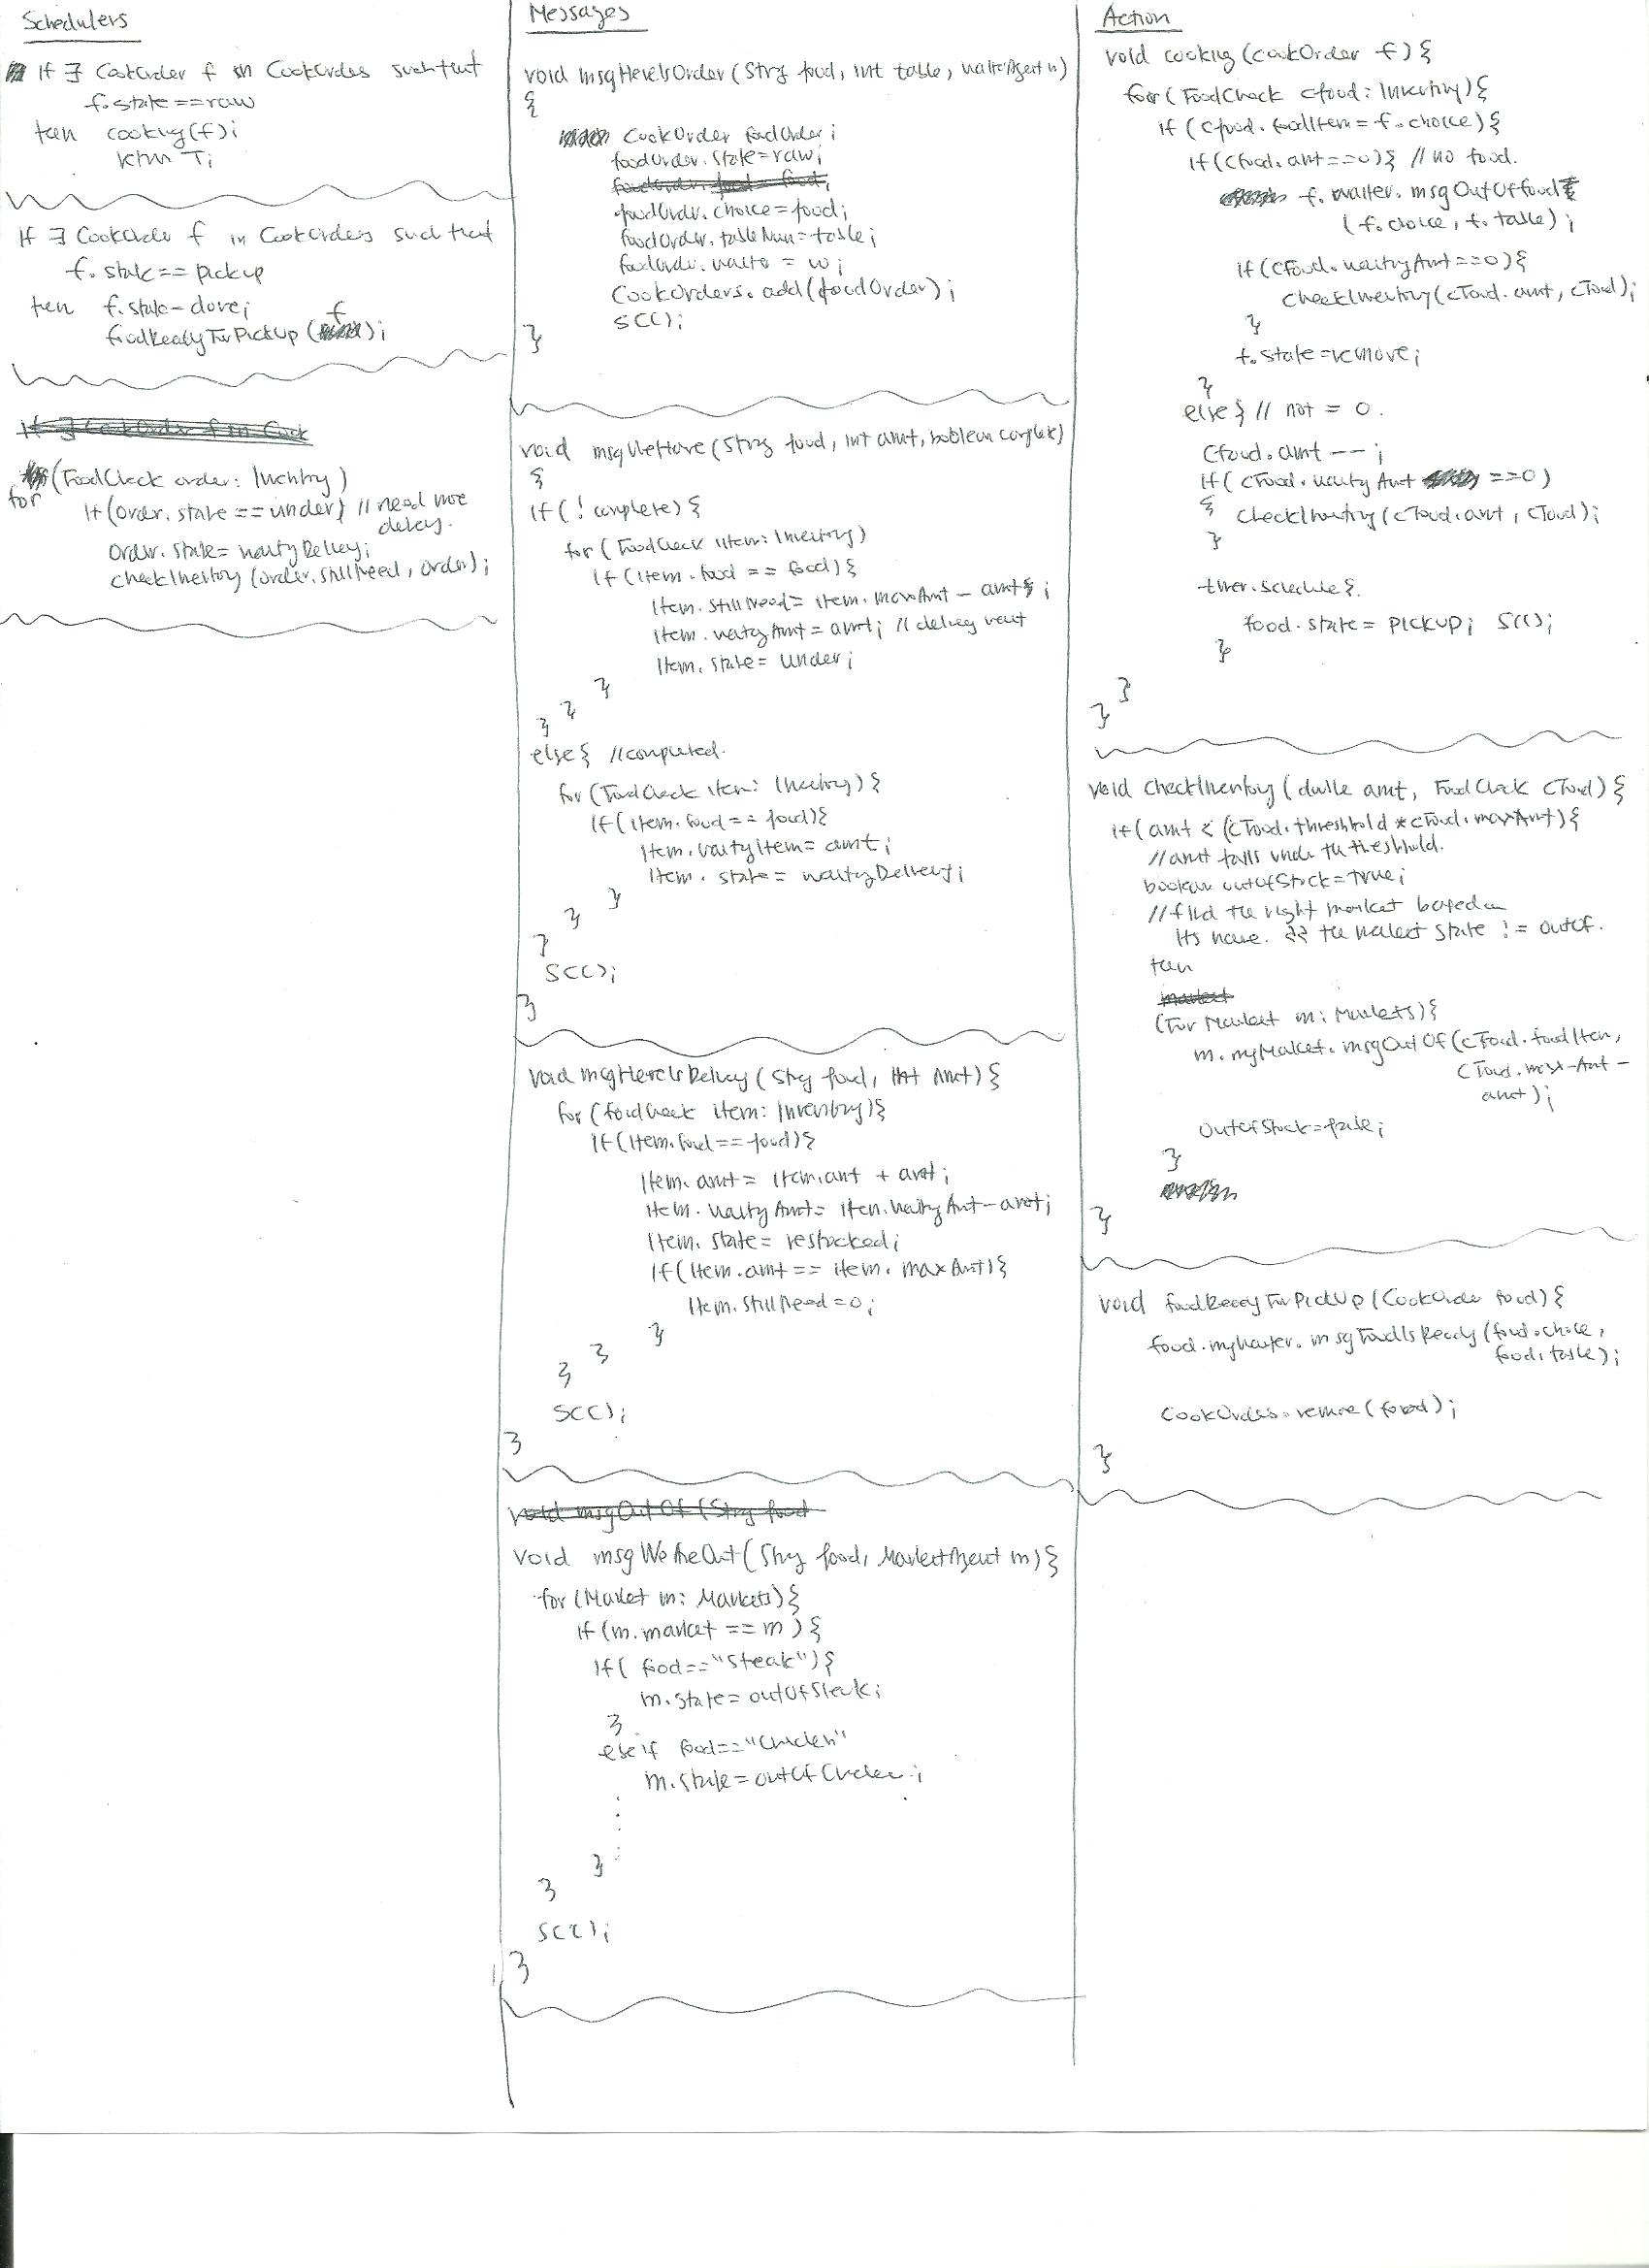 Schedulers
If ∃ CookOrder f in CookOrders such that
f.state == raw
then cooking(f);
return T;
If ∃ CookOrder f in CookOrders such that
f.state == pickup
then f.state = done;
foodReadyForPickUp (f);
If ∃ CookOrder f in Cook
for (FoodCheck order: Inventory)
If (order.state == under) // need more
delivery.
Order.state = waityDelivey;
checkInventory (order.stillNeed, order);
Messages
void msgHereIsOrder (String food, int table, WaiterAgent w)
{
CookOrder foodOrder;
foodOrder.state = raw;
foodOrder.food = food;
foodOrder.choice = food;
foodOrder.tableNum = table;
foodOrder.waiter = w;
CookOrders.add(foodOrder);
SCC);
}
void msgWeHave (String food, int amt, boolean complete)
{
if (! complete) {
for (FoodCheck item: Inventory)
if (item.food == food) {
item.stillNeed = item.maxAmt - amt;
item.waityAmt = amt; // delivey went
item.state = under;
}
}
}
else { // completed.
for (FoodCheck item: Inventory) {
if (item.food == food) {
item.waityItem = amt;
item.state = waityDelivery;
}
}
}
SCC);
}
void msgHereIsDelivey (String food, int Amt) {
for (foodCheck item: Inventory) {
if (item.food == food) {
item.amt = item.amt + amt;
item.waityAmt = item.waityAmt - amt;
item.state = restocked;
if (item.amt == item.maxAmt) {
item.stillNeed = 0;
}
}
}
SCC);
}
void msgOutOf (String food
void msgWeAreOut (String food, MarketAgent m) {
for (Market m: Markets) {
if (m.market == m) {
if ( food == "Steak") {
m.state = outOfSteak;
}
else if food == "Chicken"
m.state = outOfChicken;
}
}
SCC);
}
Action
void cooking (CookOrder f) {
for (FoodCheck cfood: Inventory) {
if (cfood.foodItem = f.choice) {
if (cfood.amt == 0) { // no food.
f.waiter.msgOutOfFood
(f.choice, f.table);
if (cFood.waityAmt == 0) {
checkInventory (cFood.amt, cFood);
}
f.state = remove;
}
else { // not = 0.
cfood.amt --;
if (cFood.waityAmt == 0)
{ checkInventory (cFood.amt, cFood);
}
timer.schedule {
food.state = pickup; SCC);
}
}
}
void checkInventory (double amt, FoodCheck cFood) {
if (amt < (cFood.threshold * cFood.maxAmt) {
// amt falls under the threshold.
boolean outOfStock = true;
// find the right market based on
its name. && the market state != outOf.
then
market
(For Market m: Markets) {
m.myMarket.msgOutOf (cFood.foodItem,
cFood.max-Amt -
amt);
outOfStock = false;
}
}
void foodReadyForPickUp (CookOrder food) {
food.myWaiter.msgFoodIsReady (food.choice,
food.table);
CookOrders.remove (food);
}